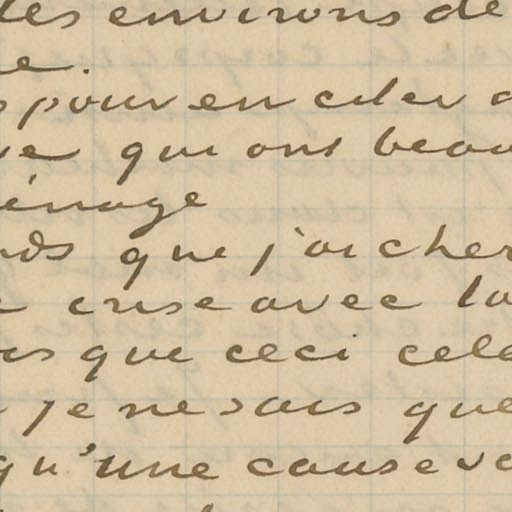 les environs de
e.
pour en citer
qui ont beau
énage
que j'ai cher
crise avec la
que ceci cela
je ne sais que
qu'une cause